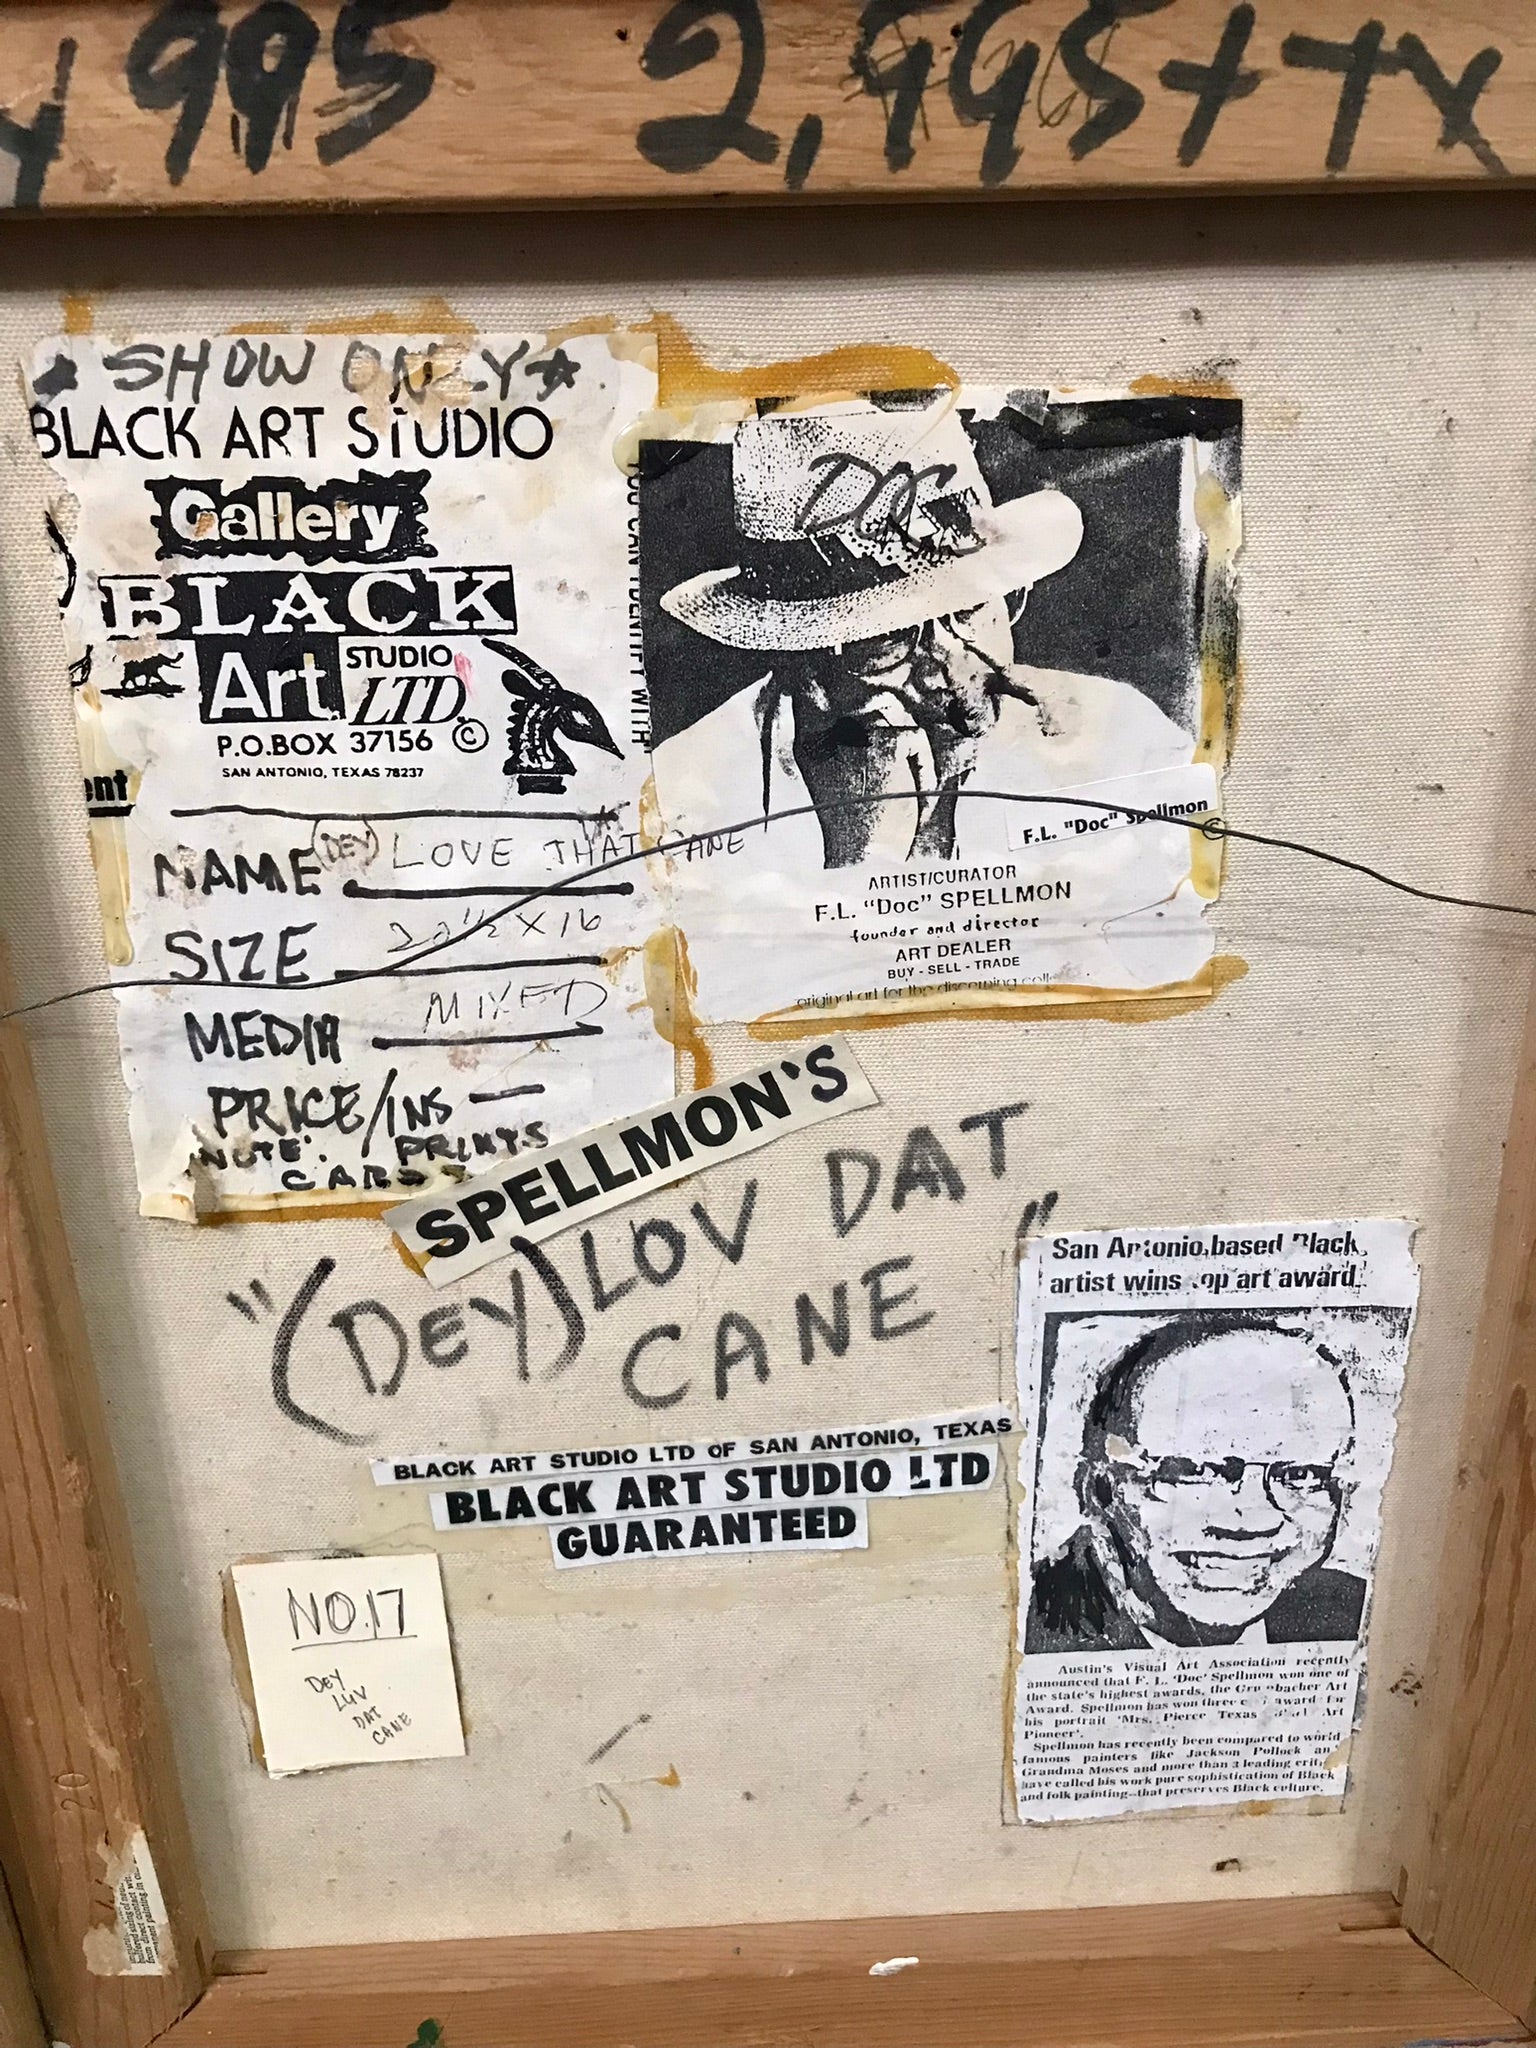 995 2,995 + TX
★ SHOW ONLY ★
BLACK ART STUDIO
Gallery
BLACK
Art STUDIO
LTD. ©
P.O.BOX 37156
SAN ANTONIO, TEXAS 78237
ent
NAME (DEY) LOVE THAT DAT CANE
SIZE 22 ½ X 16
MEDIA MIXED
PRICE/INS —
NOTE: PRINTS
CARDS
YOU CAN IDENTIFY WITH
DOC
F.L. "Doc" Spellmon
©
ARTIST/CURATOR
F.L. "Doc" SPELLMON
founder and director
ART DEALER
BUY - SELL - TRADE
original art for the discerning
SPELLMON'S
"(DEY) LOV DAT
CANE"
BLACK ART STUDIO LTD OF SAN ANTONIO, TEXAS
BLACK ART STUDIO LTD
GUARANTEED
NO.17
DEY
LUV
DAT
CANE
San Antonio based Black
artist wins top art award
Austin's Visual Art Association recently
announced that F. L. 'Doc' Spellmon won one of
the state's highest awards, the Grumbacher Art
Award. Spellmon has won three award for
his portrait 'Mrs. Pierce Texas Art
Pioneer'.
Spellmon has recently been compared to world
famous painters like Jackson Pollock an
Grandma Moses and more than 3 leading criti
have called his work pure sophistication of Black
and folk painting--that preserves Black culture.
20
buffered sizing of
from direct contact wit
painting in